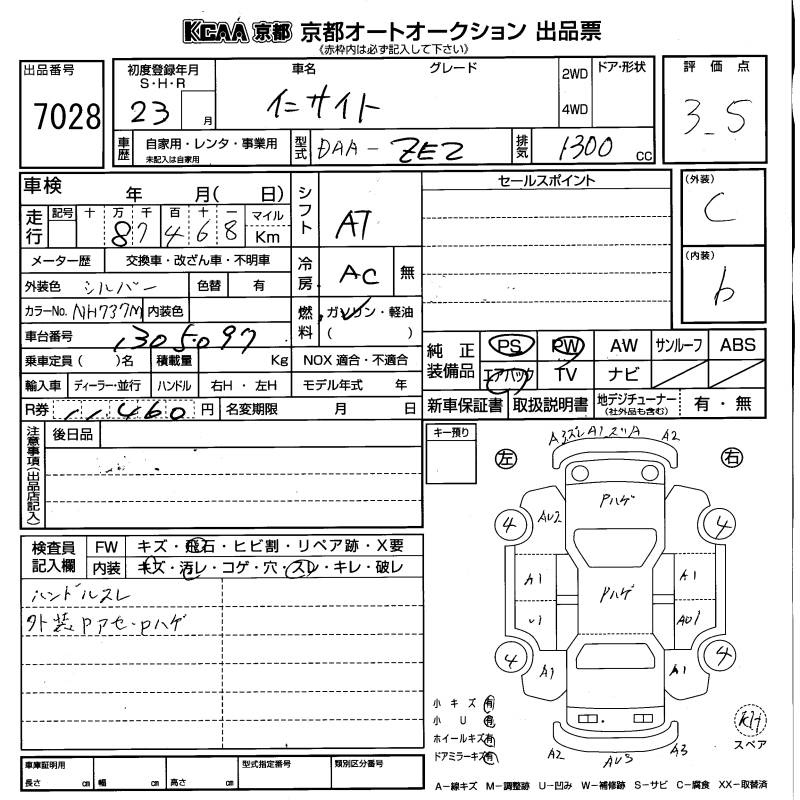 KCAA 京都 京都オートオークション 出品票
《赤枠内は必ず記入して下さい》
出品番号 初度登録年月 車名 グレード ドア・形状 評価点
S・H・R 2WD
7028 23 月 インサイト 4WD 3.5
車歴 自家用・レンタ・事業用 型式 DAA-ZE2 排気 1300 cc
未記入は自家用
車検 年 月( 日) シフト AT セールスポイント (外装)
走行 記号 十 万 千 百 十 一 マイル C
8 7 4 6 8 Km
メーター歴 交換車・改ざん車・不明車 冷房 AC 無 (内装)
外装色 シルバー 色替 有 b
カラーNo. NH737M 内装色 燃料 ガソリン・軽油
( )
車台番号 1305097
純正装備品 PS PW AW サンルーフ ABS
乗車定員 ( )名 積載量 Kg NOX 適合・不適合
エアバック TV ナビ
輸入車 ディーラー・並行 ハンドル 右H・左H モデル年式 年
新車保証書 取扱説明書 地デジチューナー (社外品も含む) 有・無
R券 11,460 円 名変期限 月 日
注意事項(出品店記入) 後日品
キー預り
A3 ズレA1 スリA A2
左 右
Pハゲ
4 AU2 4
検査員記入欄 FW キズ・飛石・ヒビ割・リペア跡・X要
内装 キズ・汚レ・コゲ・穴・スレ・キレ・破レ
A1 A1
Pハゲ
ハンドルスレ
外装Pアセ・Pハゲ
U1 AU1
4 A1 A1 4
小キズ 有
小U 有
ホイールキズ 有
ドアミラーキズ 有
スペア
A2 AU3 A3
車庫証明用 型式指定番号 類別区分番号
長さ cm 幅 cm 高さ cm
A―線キズ M―調整跡 U―凹み W―補修跡 S―サビ C―腐食 XX―取替済